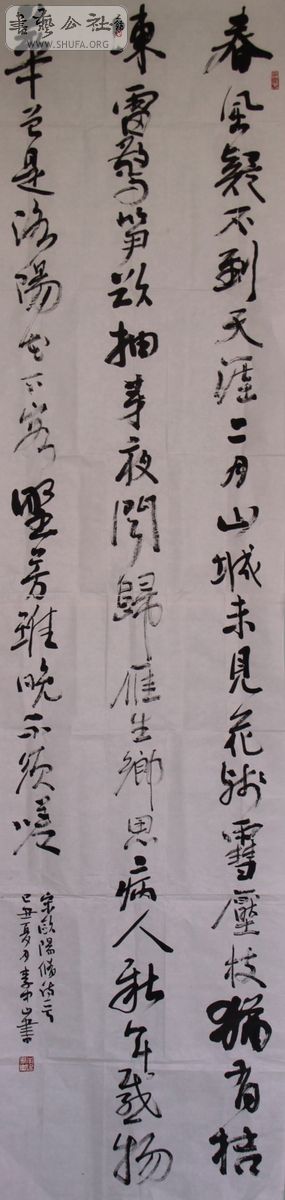 書藝公社
WWW.SHUFA.ORG
春風疑不到天涯二月山城未見花殘雪壓枝猶有桔
東雷驚笋欲抽芽夜聞歸雁生鄉思病人新年感物
華曾是洛陽花下客野芳雖晚不須嗟
宋歐陽脩詩一首
己丑夏月李